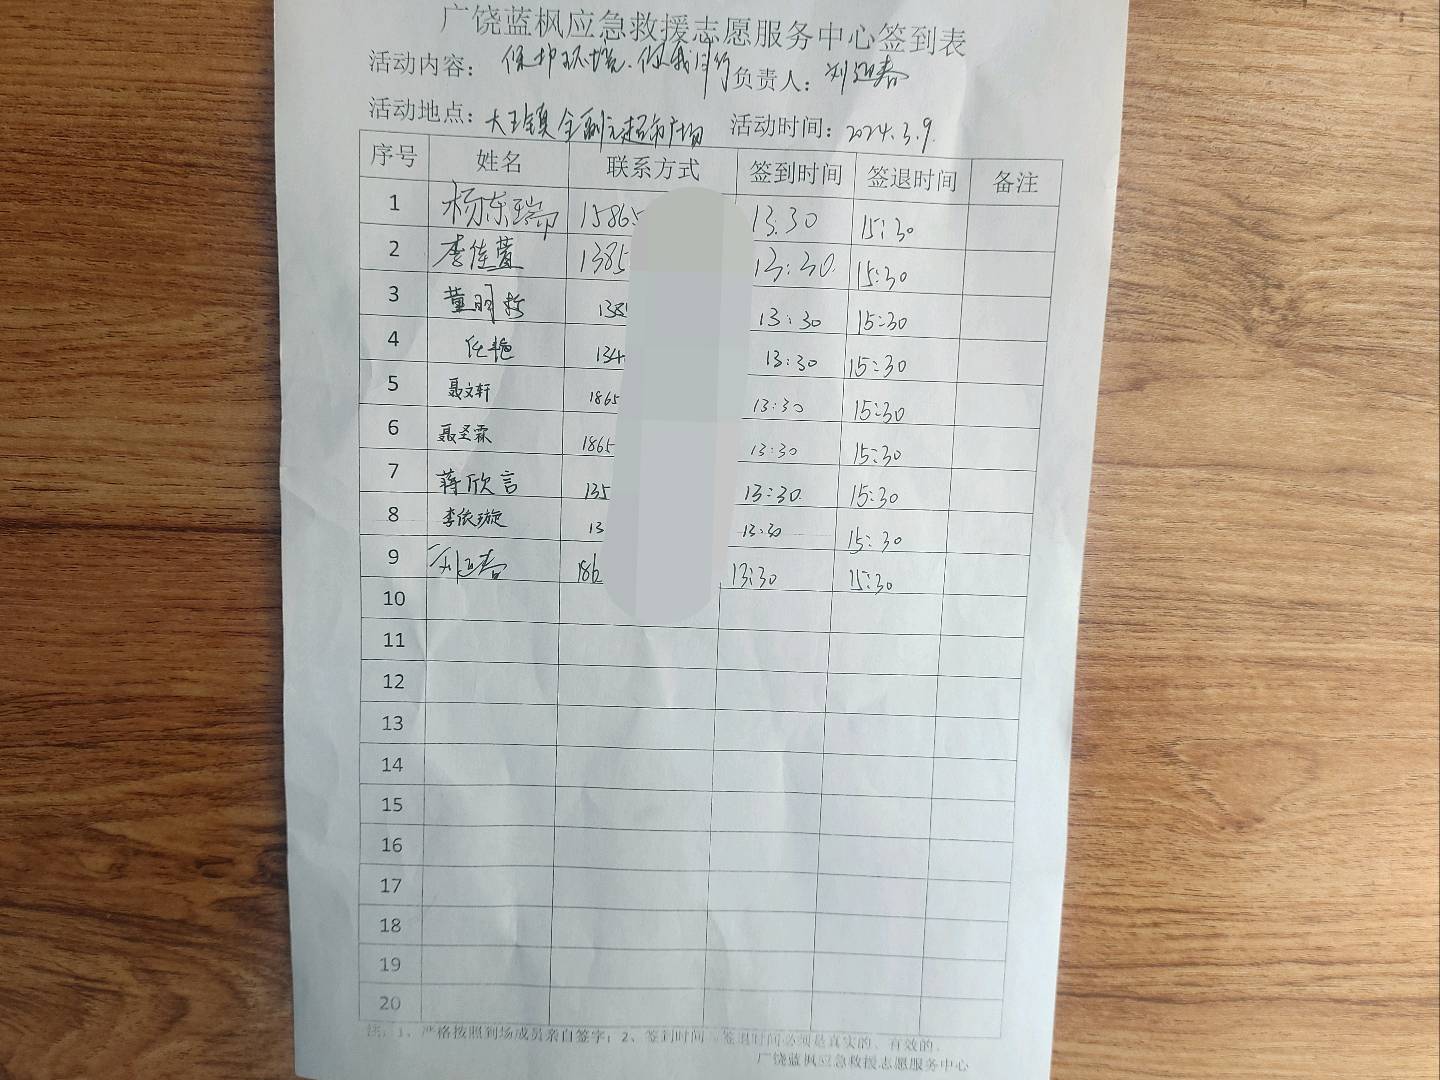 广饶蓝枫应急救援志愿服务中心签到表
活动内容： 保护环境、你我同行 负责人： 刘迎春
活动地点： 大王镇全副元超市广场 活动时间： 2024.3.9.
序号 姓名 联系方式 签到时间 签退时间 备注
1 杨东瑞 15865 13.30 15:30
2 李佳萱 1385 13:30 15:30
3 董明哲 138 13:30 15:30
4 任艳 134 13:30 15:30
5 聂文轩 1865 13:30 15:30
6 聂圣霖 1865 13:30 15:30
7 蒋欣言 135 13:30 15:30
8 李依璇 13 13:30 15:30
9 刘迎春 186 13:30 15:30
10
11
12
13
14
15
16
17
18
19
20
注：1、严格按照到场成员亲自签字；2、签到时间、签退时间必须是真实的、有效的。
广饶蓝枫应急救援志愿服务中心